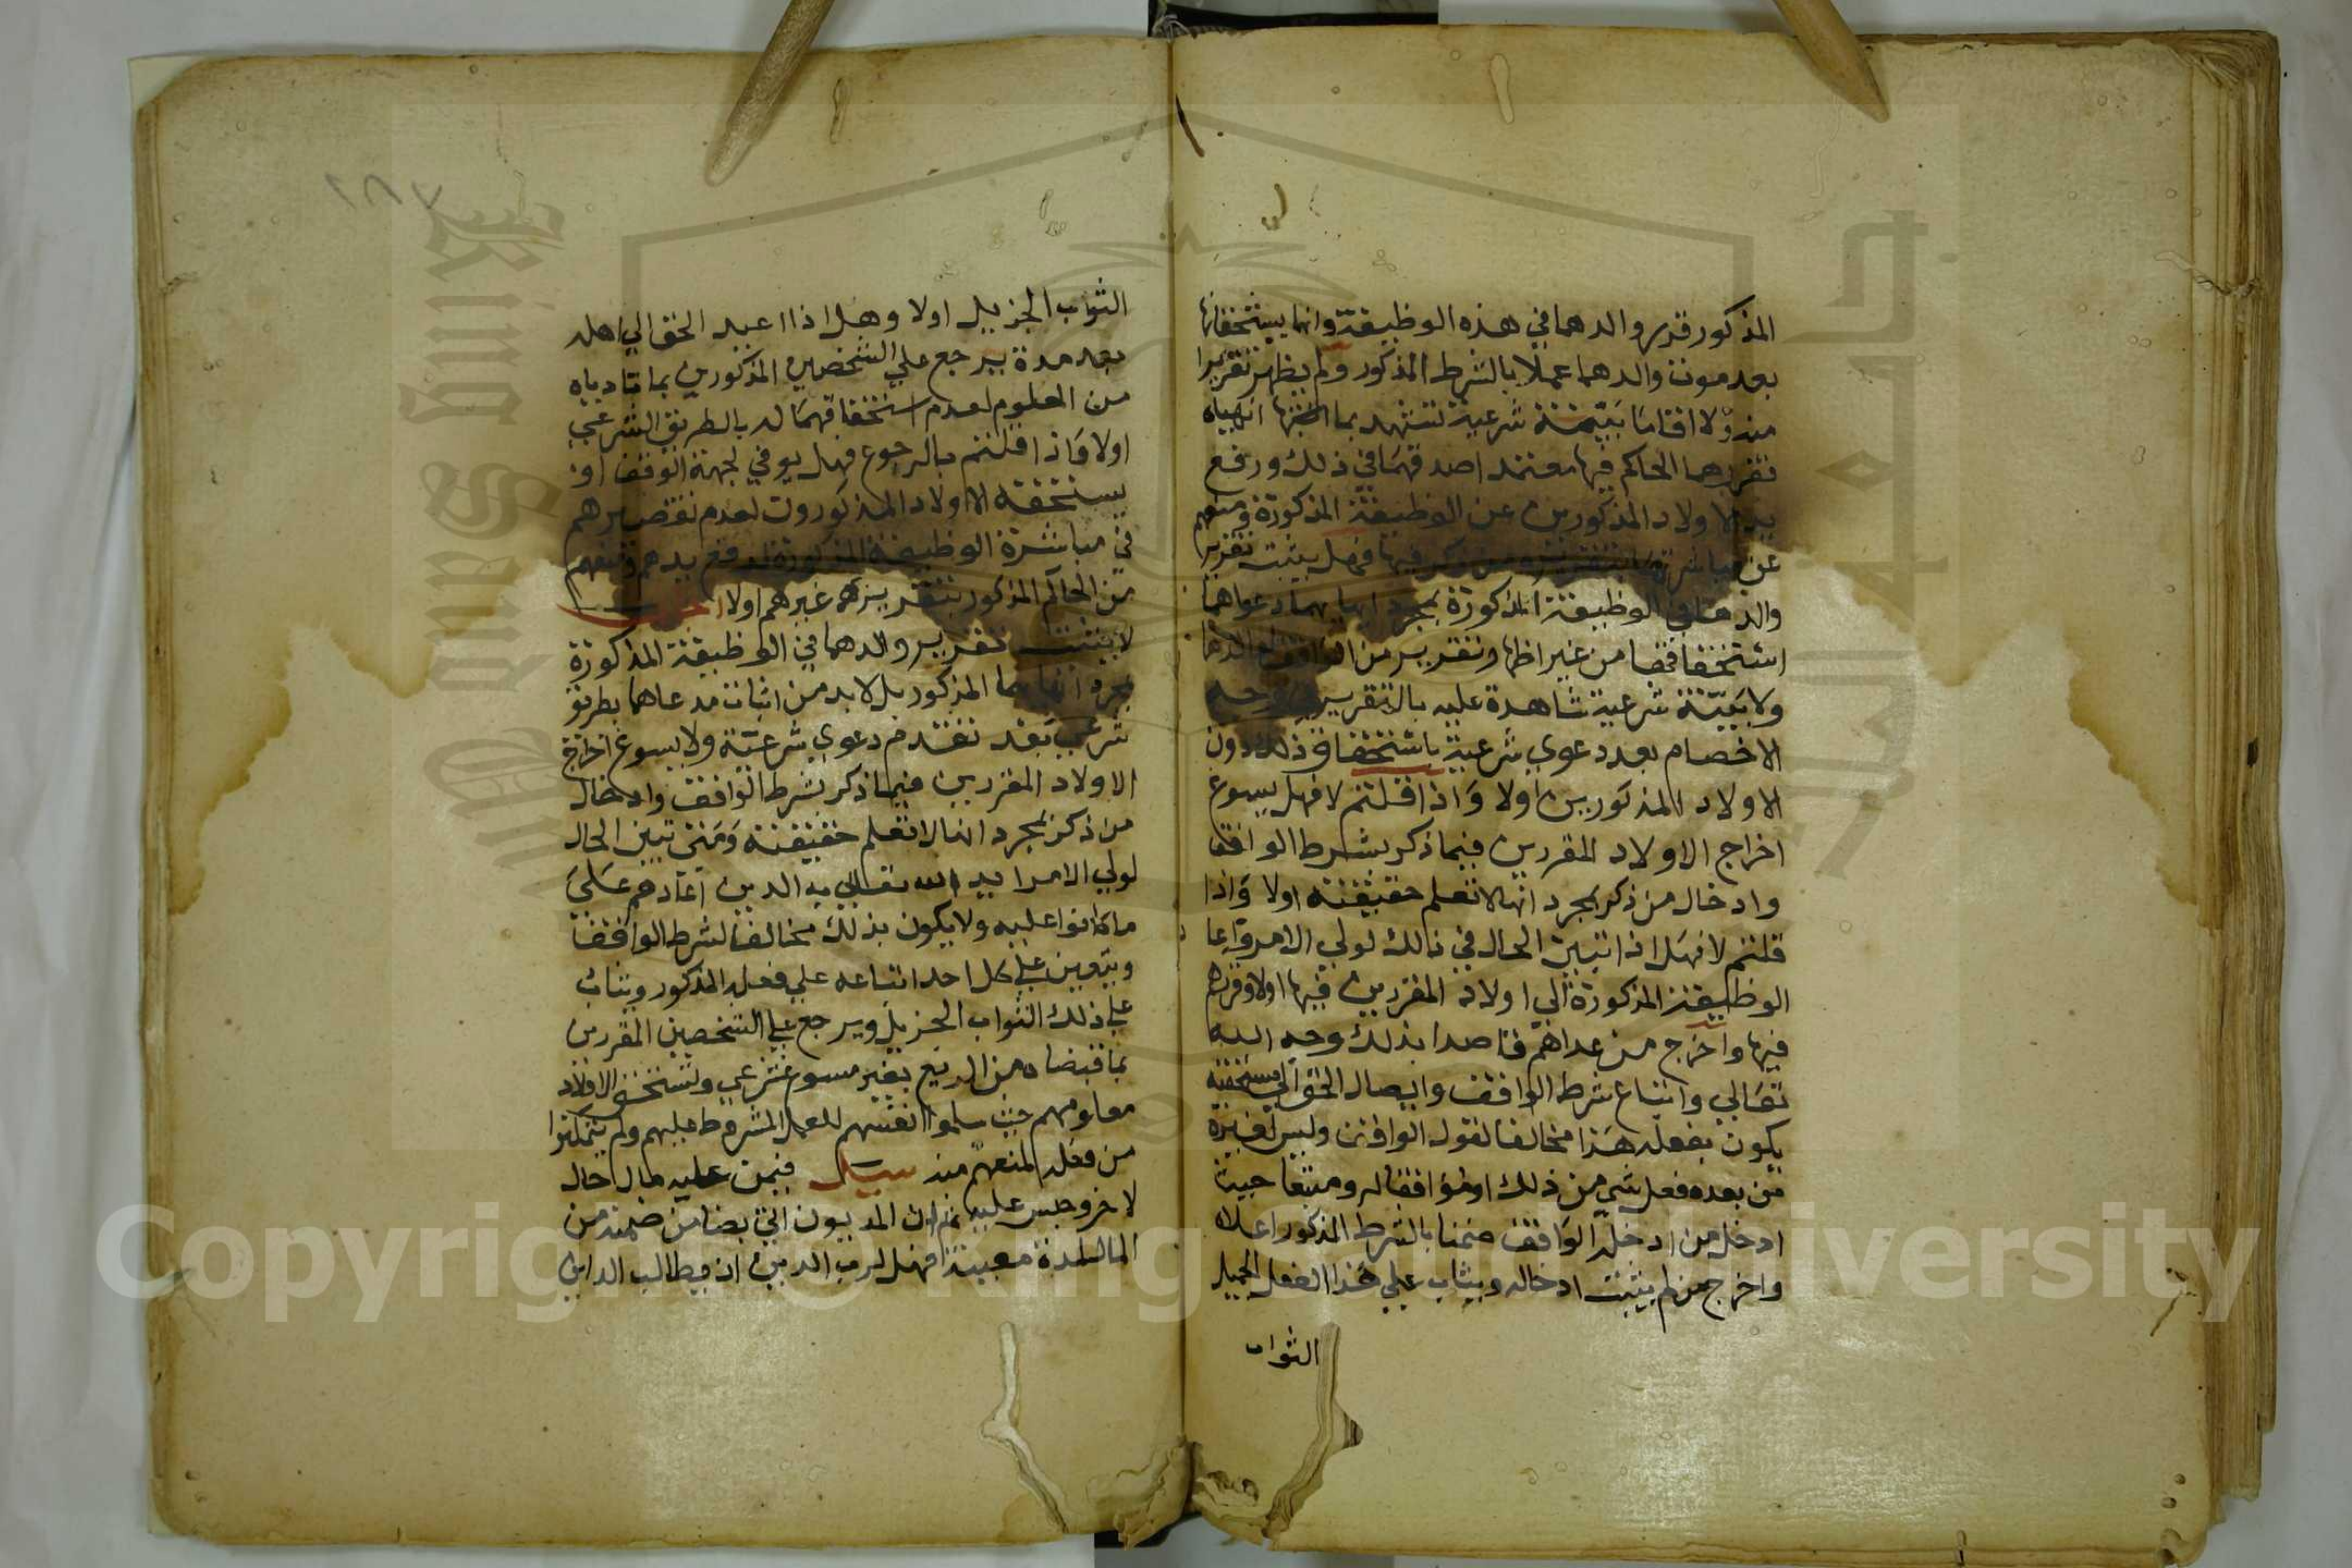 المذكور قرر والدهما في هذه الوظيفة وانهما يستحقانها
بعد موت والدهما عملا بالشرط المذكور ولم يظهر تقريرا
منه ولا اقاما بينة شرعية تشهد بما انهياه
فقررهما الحاكم فيها معتمد اصدقهما في ذلك ورفع
يد الاولاد المذكورين عن الوظيفة المذكورة ومنعهم
عن مباشرتها فيها فهل يثبت تقرير
والدهما في الوظيفة المذكورة بمجرد انهايهما دعواهما
استحقاقها من غير اظهار تقرير من الواقف لوالدهما
ولا بينة شرعية شاهدة عليه بالتقرير في وجه
الاخصام بعد دعوي شرعية باستحقاق ذلك دون
الاولاد المذكورين اولا واذا قلتم لا فهل يسوغ
اخراج الاولاد المقررين فيما ذكر بشرط الواقف
وادخال من ذكر بمجرد انها لا تعلم حقيقته اولا واذا
قلتم لا فهل اذا تبين الحال في ذلك لولي الامر واعا
الوظيفة المذكورة الي اولاد المقررين فيها اولا وقررهم
فيها واخرج من عداهم قاصدا بذلك وجه الله
تعالي واتباع شرط الواقف وايصال الحق الي مستحقه
يكون بفعله هذا مخالفا لقول الواقف وليس لغيره
من بعده فعل شي من ذلك او موافقا له ومتبعا حيث
ادخل من ادخله الواقف ضمنا بالشرط المذكور اعلاه
واخرج من لم يثبت ادخاله ويثاب علي هذا الفعل الجميل
الثواب
الثواب الجزيل اولا وهل اذا اعيد الحق الي اهله
بعد مدة يرجع علي الشخصين المذكورين بما
من المعلوم لعدم استحقاقهما له بالطريق الشرعي
اولا واذا قلتم بالرجوع فهل يوفي لجهة الوقف او
يستحقه الاولاد المذكورون لعدم تقصيرهم
في مباشرة الوظيفة المذكورة لرفع يدهم ومنعهم
من الحاكم المذكور بتقرير غيرهم اولا
لا يثبت تقرير والدهما في الوظيفة المذكورة
بمجرد انهايهما المذكور بل لا بد من اثبات مدعاهما بطريق
شرعي بعد تقدم دعوي شرعية ولا يسوغ اخراج
الاولاد المقررين فيما ذكر بشرط الواقف وادخال
من ذكر بمجرد انها لا تعلم حقيقته ومتي تبين الحال
لولي الامر ايد الله تعالي به الدين اعادهم علي
ما كانوا عليه ولا يكون بذلك مخالفا لشرط الواقف
ويتعين علي كل احد اتباعه علي فعله المذكور ويثاب
علي ذلك الثواب الجزيل ويرجع علي الشخصين المقررين
بما قبضاه من الريع بغير مسوغ شرعي ويستحق الاولاد
معلومهم حيث سلموا انفسهم للعمل المشروط عليهم ولم يتمكنوا
من فعله لمنعهم منه سيل فيمن عليه مال حال
لاخر وحبس عليه ثم ان المديون ضمنه من
المال لمدة معينة فهل لرب الدين ان يطالب الداين